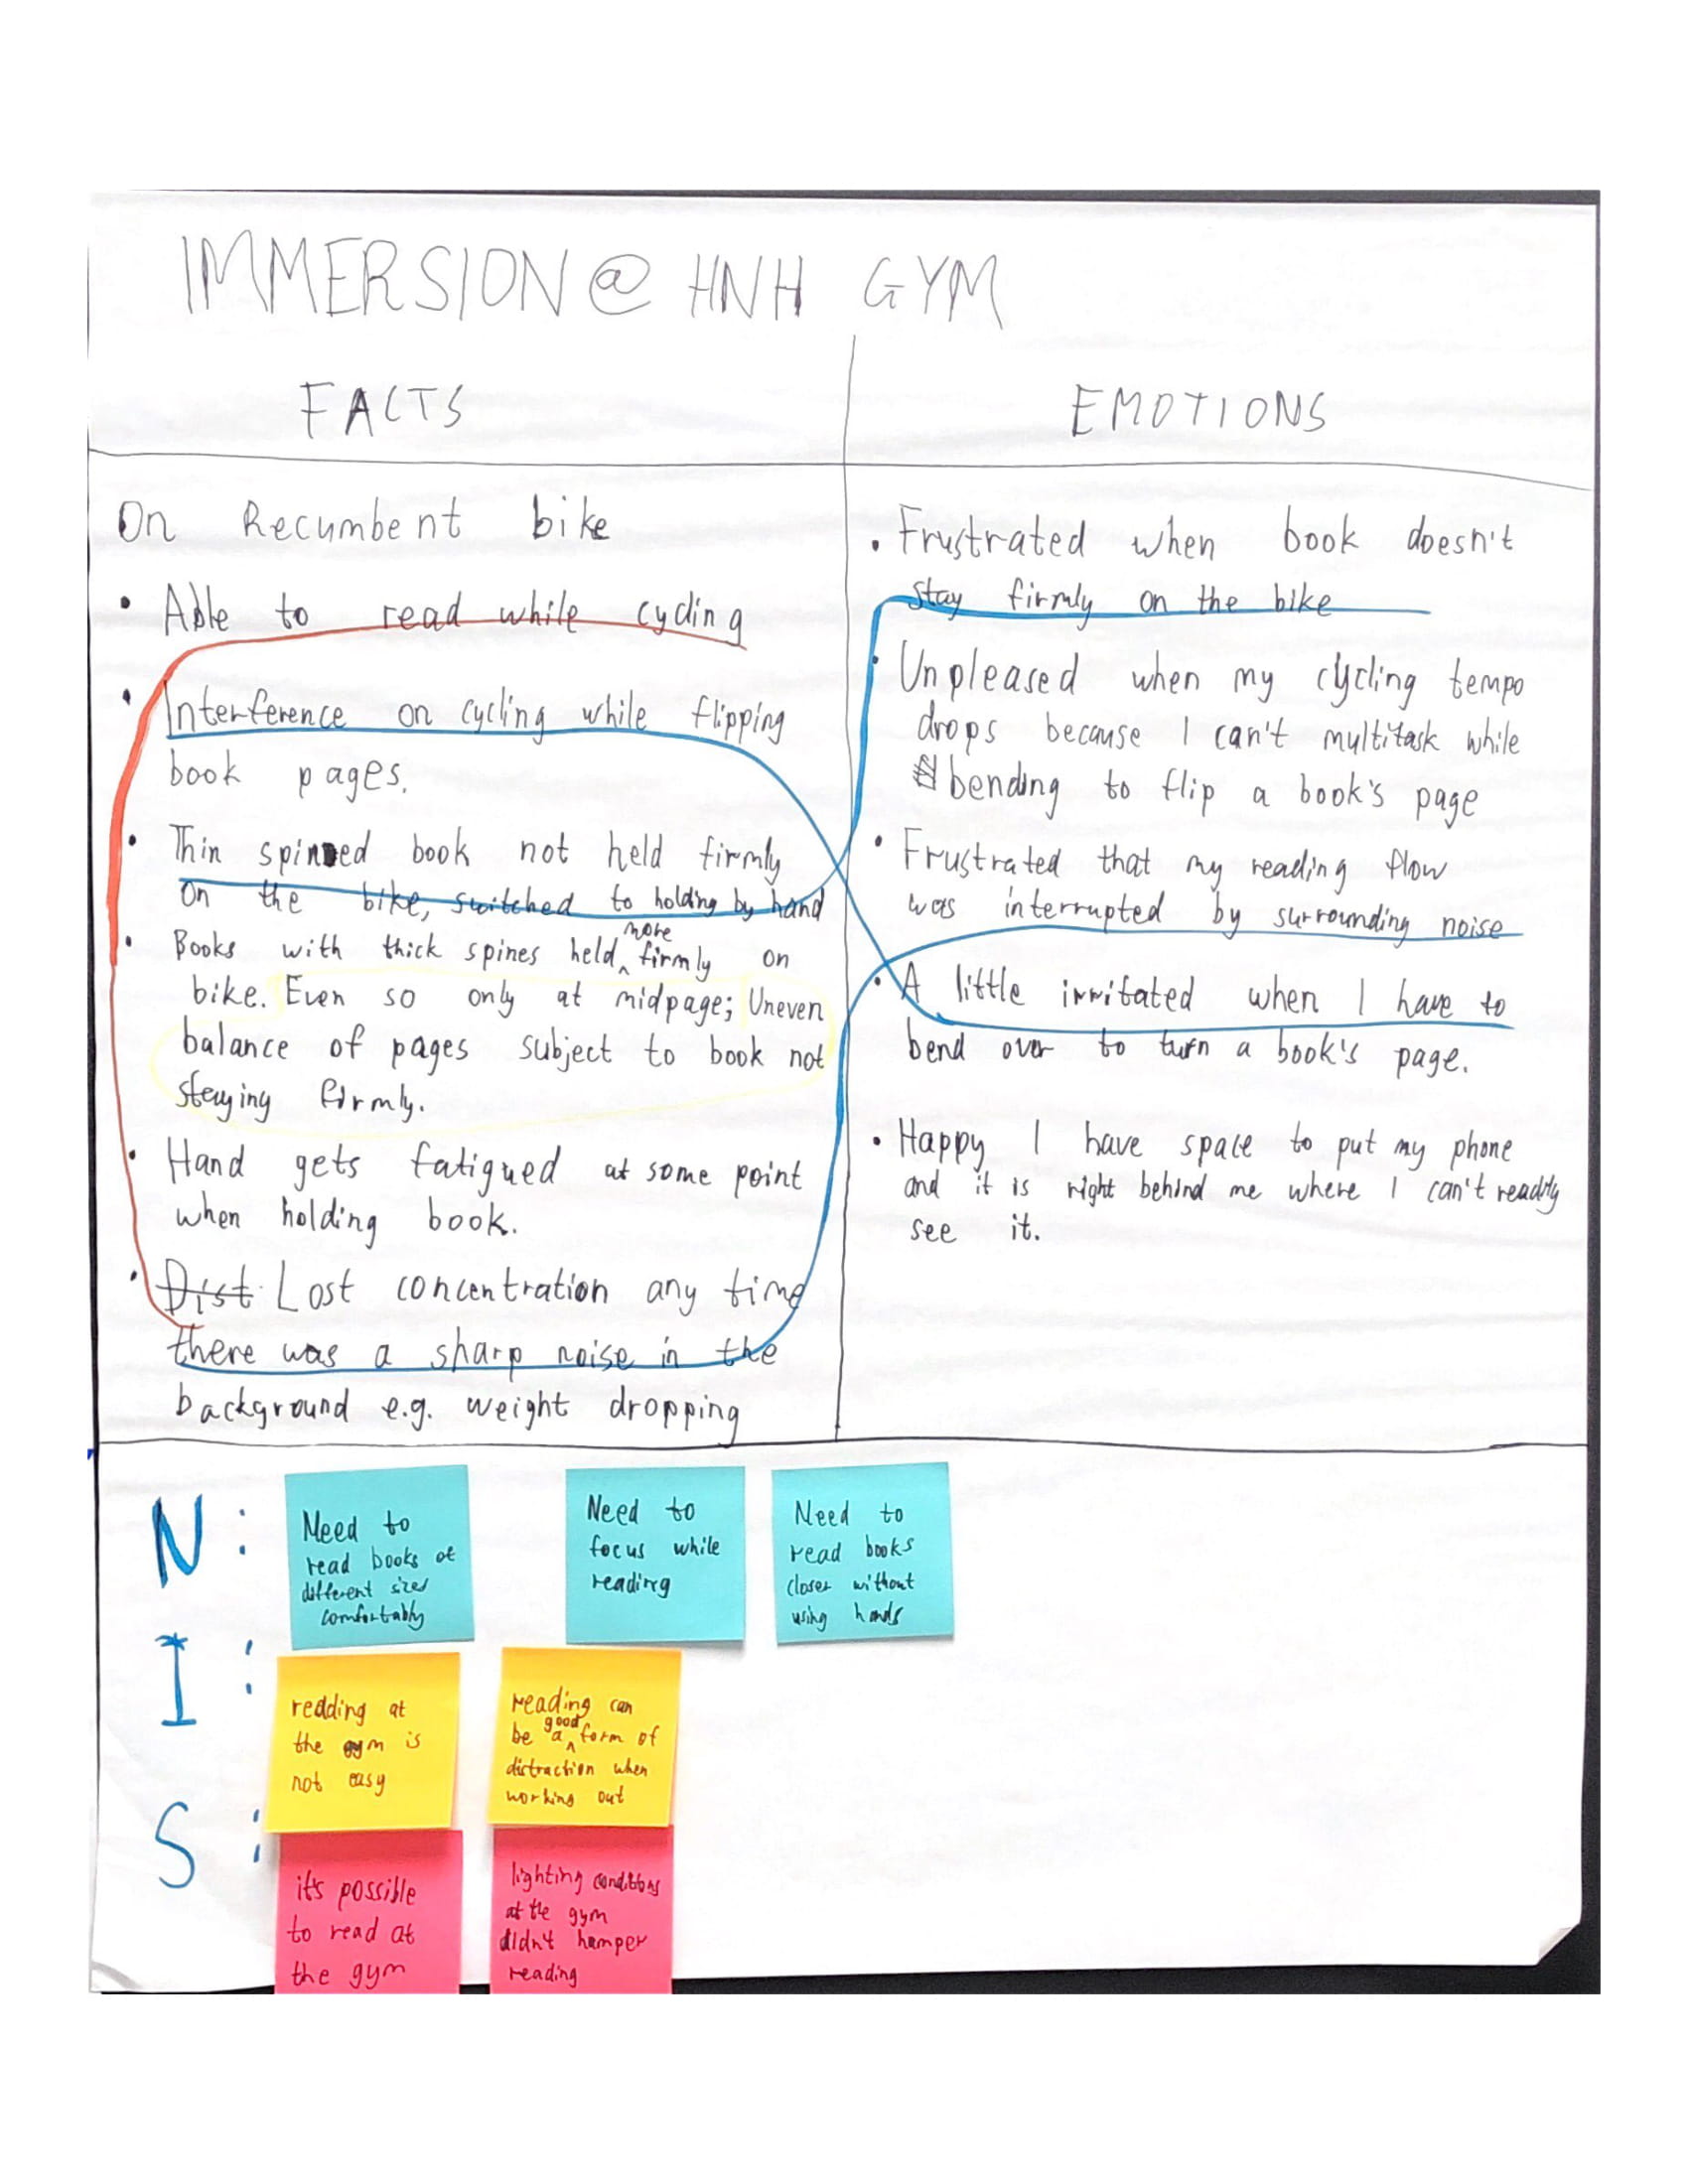 IMMERSION @ HNH GYM
FACTS
On Recumbent bike
• Able to read while cycling
• Interference on cycling while flipping
book pages.
• Thin spinned book not held firmly
on the bike, switched to holding by hand
• Books with thick spines held more firmly on
bike. Even so only at midpage; Uneven
balance of pages subject to book not
staying firmly.
• Hand gets fatigued at some point
when holding book.
• Dist. Lost concentration any time
there was a sharp noise in the
background e.g. weight dropping
EMOTIONS
• Frustrated when book doesn't
stay firmly on the bike
• Unpleased when my cycling tempo
drops because I can't multitask while
bending to flip a book's page
• Frustrated that my reading flow
was interrupted by surrounding noise
• A little irritated when I have to
bend over to turn a book's page.
• Happy I have space to put my phone
and it is right behind me where I can't readily
see it.
N:
Need to
read books of
different sizes
comfortably
Need to
focus while
reading
Need to
read books
closer without
using hands
I:
reading at
the gym is
not easy
reading can
be a good form of
distraction when
working out
S:
it's possible
to read at
the gym
lighting conditions
at the gym
didn't hamper
reading